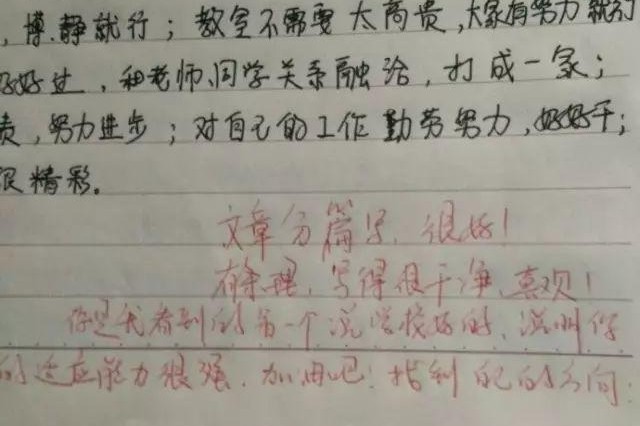 ，博.静就行；教室不需要太高贵,大家有努力就行
好好过，和老师、同学关系融洽，打成一家；
责,努力进步；对自己的工作勤劳努力,好好干；
很精彩。
文章分篇写，很好！
有条理，写得很干净、美观！
你是我看到的第一个说学校好的，说明你
的适应能力很强．加油吧！找到自己的方向